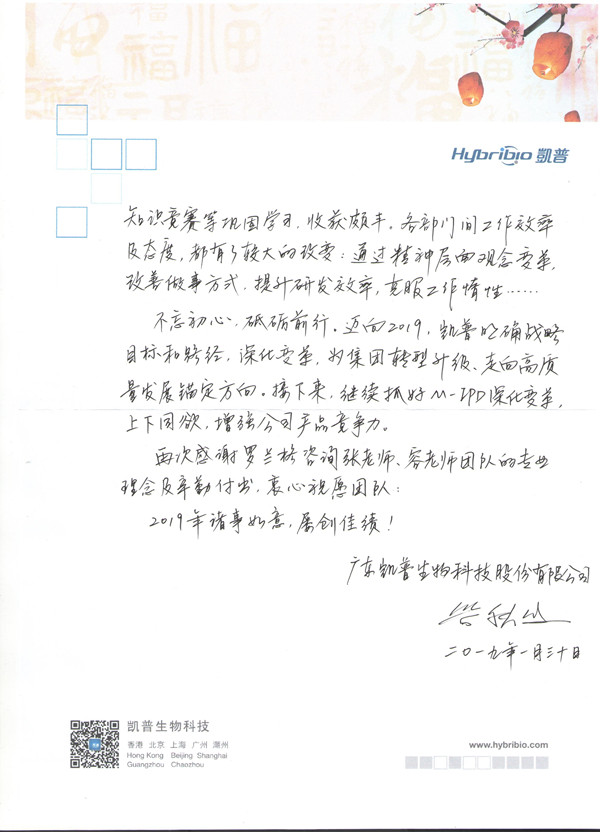 Hybribio 凯普
知识竞赛等巩固学习，收获颇丰。各部门间工作效率
及态度，都有了较大的改变：通过精神层面观念变革，
改善做事方式，提升研发效率，克服工作惰性……
不忘初心，砥砺前行。迈向2019，凯普明确战略
目标和路经，深化变革，为集团转型升级、走向高质
量发展锚定方向。接下来，继续抓好M-IPD深化变革，
上下同欲，增强公司产品竞争力。
再次感谢罗兰格咨询张老师、容老师团队的专业
理念及辛勤付出，衷心祝愿团队：
2019年诸事如意，屡创佳绩！
广东凯普生物科技股份有限公司
二〇一九年一月三十日
凯普生物科技
香港 北京 上海 广州 潮州
Hong Kong Beijing Shanghai
Guangzhou Chaozhou
www.hybribio.com